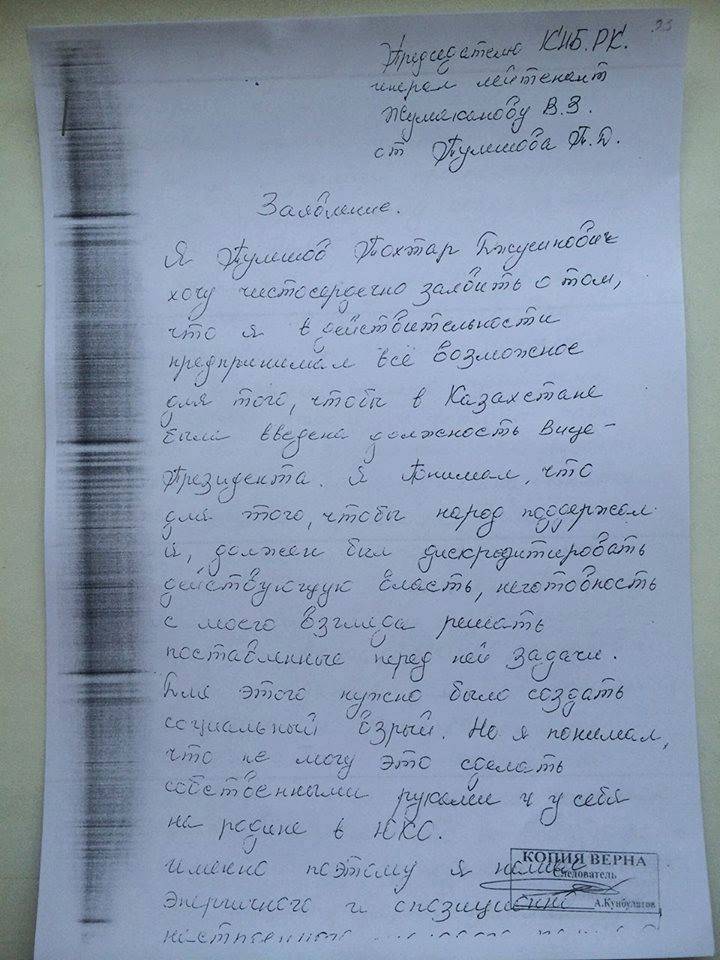 93
Председателю КНБ. РК.
генерал лейтенант
Жумаканову В.З.
от Тулешова Т.Д.
Заявление.
Я Тулешов Тохтар
хочу чистосердечно заявить о том,
что я в действительности
предпринимал всё возможное
для того, чтобы в Казахстане
была введена должность Вице-
Президента. Я понимал, что
для того, чтобы народ поддержал
я, должен был дискредитировать
действующую власть, неготовность
с моего взгляда решать
поставленные перед ней задачи.
Для этого нужно было создать
социальный взрыв. Но я понимал,
что не могу это сделать
собственными руками и у себя
на родине в ЮКО.
именно поэтому я
энергичного и
КОПИЯ ВЕРНА
Следователь
А.Кунбулатов